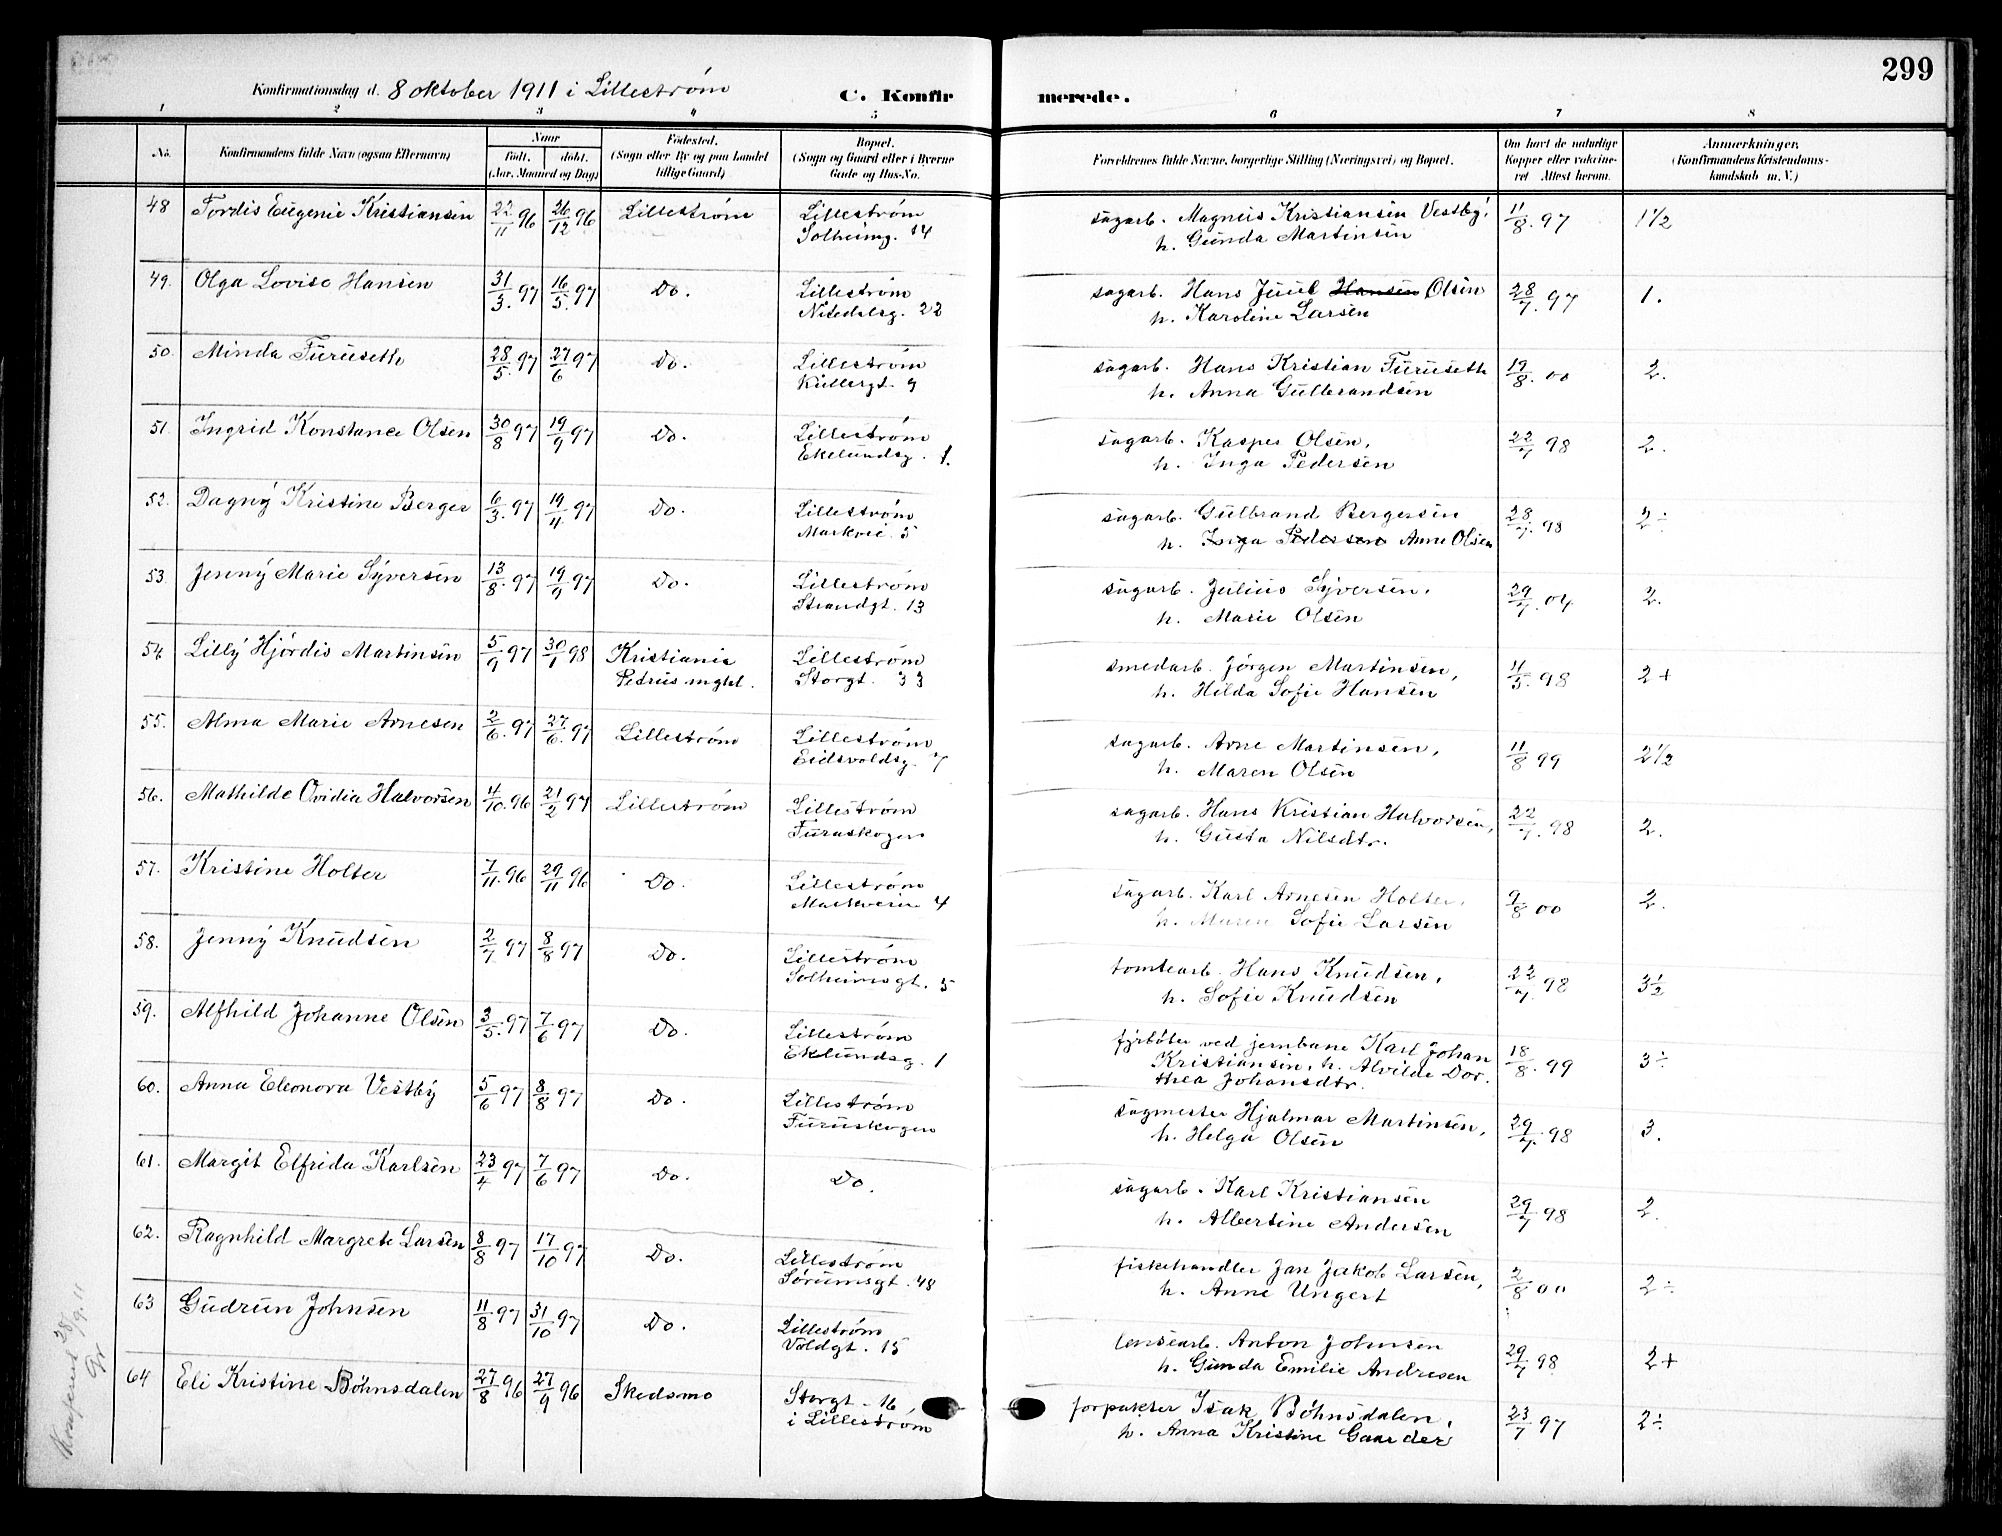 299
Konfirmationsdag d. 8 oktober 1911 i Lilleström
C. Konfirmerede.
1 2 3 4 5 6 7 8
No. Konfirmandens fulde Navn (ogsaa Efternavn) Naar født. døbt. (Aar, Maaned og Dag) Fødested. (Sogn eller By og paa Landet tillige Gaard) Bopæl. (Sogn og Gaard eller i Byerne Gade og Hus-No. Forældrenes fulde Navne, borgerlige Stilling (Næringsvei) og Bopæl. Om havt de naturlige Kopper eller vakcineret. Attest herom. Anmærkninger, (Konfirmandens Kristendomskundskab m. V.)
48 Tordis Eugenie Kristiansen 22/11 96 26/12 96 Lilleström Lilleström Solheimg. 14 sagarb. Magnus Kristiansen Vestby, 11/8. 97 1 1/2
h. Gunda Martinsen
49. Olga Lovise Hansen 31/3. 97 16/5. 97 Do. Lilleström Nitedalsg. 22 sagarb. Hans Juul Hansen Olsen 28/7. 97 1.
h. Karoline Larsen
50. Minda Furuseth 28/5. 97 27/6 97 Do. Lilleström Kullergt. 9 sagarb. Hans Kristian Furuseth 19/8. 00 2.
h. Anna Gulbrandsen
51. Ingrid Konstance Olsen 30/8 97 19/9 97 Do. Lilleström Ekelundsg. 1. sagarb. Kasper Olsen, 22/7 98 2.
h. Inga Pedersen
52. Dagny Kristine Berger 6/3. 97 19/4 97 Do. Lilleström Markvei. 5 sagarb. Gulbrand Bergersen 28/7. 98 2÷
h. Inga Pedersen Anne Olsen
53. Jenny Marie Syversen 13/8. 97 19/9 97 Do. Lilleström Strandgt. 13 sagarb. Julius Syversen, 29/7. 04 2.
h. Marie Olsen
54. Lilly Hjördis Martinsen 5/9 97 30/1 98 Kristiania Petrus mght. Lilleström Storgt. 33 smedarb. Jörgen Martinsen, 11/5. 98 2+
h. Hilda Sofie Hansen
55. Alma Marie Arnesen 2/6. 97 27/6. 97 Lilleström Lilleström Eidsvoldsg. 7 sagarb. Arne Martinsen, 11/8 99 2 1/2
h. Maren Olsen
56. Mathilde Ovidia Halvorsen 11/10. 96 21/2 97 Lilleström Lilleström Furuskogen sagarb. Hans Kristian Halvorsen, 22/7. 98 2.
h. Gusta Nilsdtr.
57. Kristine Holter 7/11. 96 29/11 96 Do. Lilleström Markveien 4 sagarb. Karl Arnesen Holter, 9/8 00 2.
h. Maren Sofie Larsen
58. Jenny Knudsen 2/7 97 8/8 97 Do. Lilleström Solheimsgt. 5 tomtearb. Hans Knudsen, 22/7. 98 3 1/2
h. Sofie Knudsen
59. Alfhild Johanne Olsen 3/5. 97 7/6 97 Do. Lilleström Ekelundsg. 1 fyrböter ved jernbane Karl Johan 18/8. 99 3÷
Kristiansen, h. Alvilde Dor.
thea Johansdtr.
60. Anna Eleonora Vestby 5/6 97 8/8 97 Do. Lilleström Furuskogen sagmester Hjalmar Martinsen, 29/7. 98 3.
h. Helga Olsen
61. Margit Elfrida Karlsen 23/4 97 7/6 97 Do. Do. sagarb. Karl Kristiansen 29/7 98 2.
h. Albertine Andersen
62. Ragnhild Margrete Larsen 8/8 97 17/10 97 Do. Lilleström Sörumsgt. 48 fiskehandler Jan Jakob Larsen, 2/8 00 2÷
h. Anne Ungert
63 Gudrun Johnsen 11/8 97 31/10 97 Do. Lilleström Voldgt. 15 lensearb. Anton Johnsen 29/7 98 2+
h. Gunda Emilie Andresen
64 Eli Kristine Böhnsdalen 27/8 96 27/9 96 Skedsmo Storgt. 16, i Lilleström forpakter Isak Böhnsdalen, 23/7 97 2÷
h. Anna Kristine Gaarder
Konfereret 28/9. 11